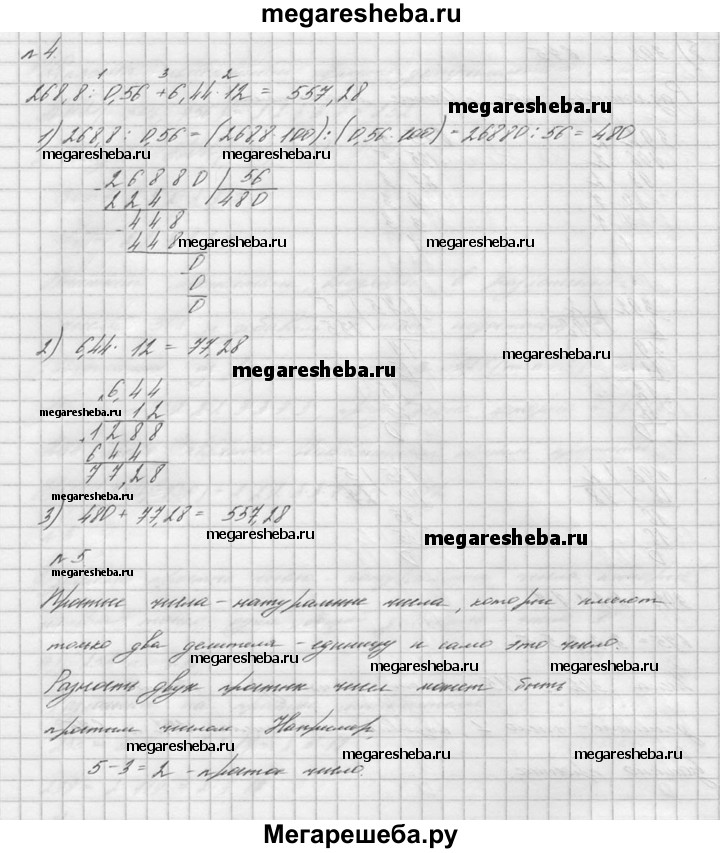 megaresheba.ru
№ 4.
1 3 2
268,8 : 0,56 + 6,44 · 12 = 557,28
megaresheba.ru
1) 268,8 : 0,56 = (268,8 · 100) : (0,56 · 100) = 26880 : 56 = 480
megaresheba.ru megaresheba.ru
- 26880 | 56
224 480
- 448
448 megaresheba.ru megaresheba.ru
- 0
0
0
2) 6,44 · 12 = 77,28
megaresheba.ru
megaresheba.ru
× 6,44
megaresheba.ru 12
+ 1288
644
77,28
megaresheba.ru
3) 480 + 77,28 = 557,28
megaresheba.ru megaresheba.ru
№ 5
megaresheba.ru
Простые числа - натуральные числа, которые имеют
только два делителя - единицу и само это число.
megaresheba.ru megaresheba.ru megaresheba.ru
Разность двух простых чисел может быть
простым числом. Например,
megaresheba.ru megaresheba.ru megaresheba.ru
5 - 3 = 2 - простое число.
Мегарешеба.ру